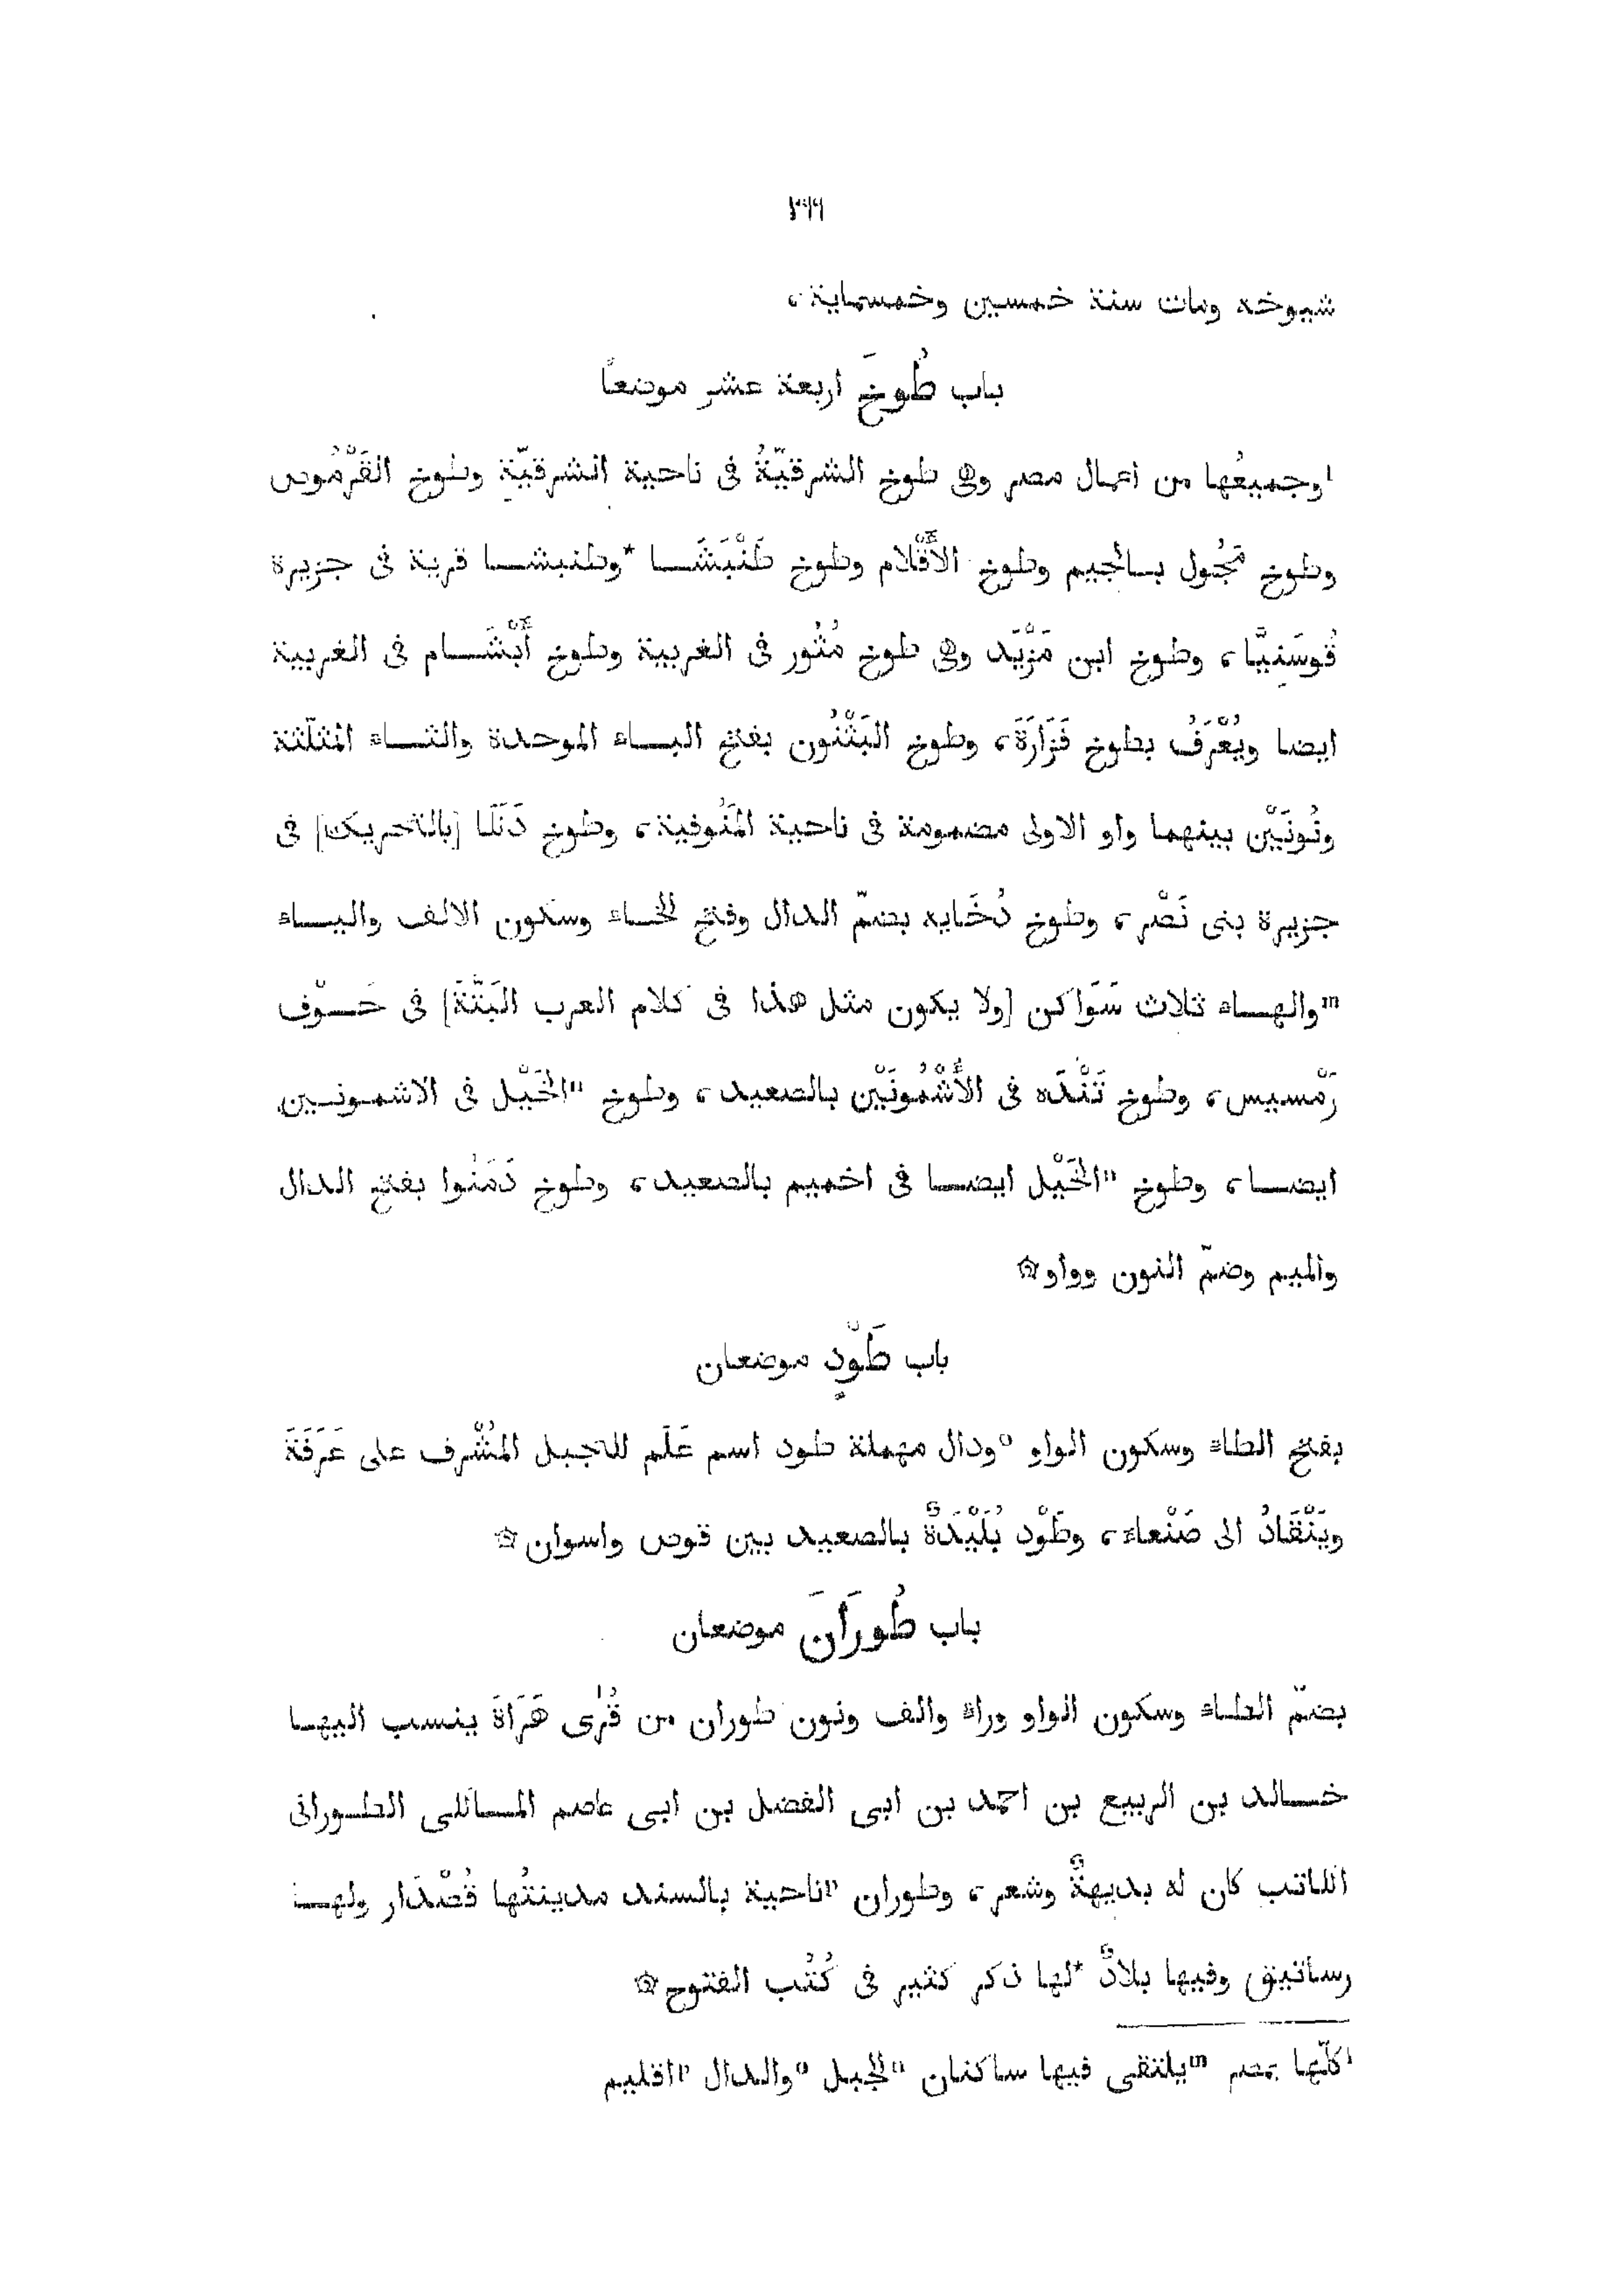 ٢٩٩
شيوخه ومات سنة خمسين وخمسماية،
باب طُوخَ اربعة عشر موضعًا
اوجميعُها من اعمال مصر وهى طوخ الشرقيّةُ فى ناحية الشرقيّة وطوخ القَرْمُوص
وطوخ نَجُول بالجيم وطوخ الأَقْلام وطوخ طَنْبَشَا *وطنبشا قرية فى جزيرة
قُوسَنِيَّا، وطوخ ابن مَزْيَد وهى طوخ مُتُور فى الغربية وطوخ أَبْشَام فى الغربية
ايضا ويُعْرَفُ بطوخ فَزَارَةَ، وطوخ البَثْنُون بفتح الباء الموحدة والثاء المثلّثة
ونُونَيْن بينهما واو الاولى مضمومة فى ناحية المَنُوفية، وطوخ دَنَلَا [بالتحريك] فى
جزيرة بنى نَصْر، وطوخ دُخَايه بضمّ الدال وفتح الخاء وسكون الالف والياء
mوالهاء ثلاث سَوَاكن [ولا يكون مثل هذا فى كلام العرب البَتَّةَ] فى حَوْف
رَمْسيس، وطوخ تَنْدَه فى الأُشْمُونَيْن بالصعيد، وطوخ nالخَيْل فى الاشمونين
ايضا، وطوخ nالخَيْل ايضا فى اخميم بالصعيد، وطوخ دَمَنُوا بفتح الدال
والميم وضمّ النون وواو ۞
باب طَوْدٍ موضعان
بفتح الطاء وسكون الواو oودال مهملة طود اسم عَلَم للجبل المُشْرف على عَرَفَةَ
ويَنْقَادُ الى صَنْعاء، وطَوْد بُلَيْدَةٌ بالصعيد بين قوص واسوان ۞
باب طُورَانَ موضعان
بضمّ الطاء وسكون الواو وراء والف ونون طوران من قُرَى هَرَاةَ ينسب اليها
خالد بن الربيع بن احمد بن ابى الفضل بن ابى عاصم المائلى الطورانى
الكاتب كان له بديهةٌ وشعر، وطوران pناحية بالسند مدينتُها قُصْدَار ولها
رساتيق وفيها بلادٌ *لها ذكر كثير فى كُتُب الفتوح ۞
lكلّها بمصر mيلتقى فيها ساكنان nالجبل oوالدال pاقليم